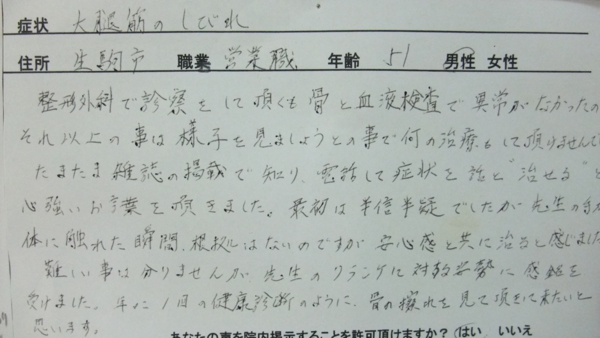 症状 大腿筋のしびれ
住所 生駒市 職業 営業職 年齢 51 男性 女性
整形外科で診察をして頂くも骨と血液検査で異常がなかったの
それ以上の事は様子を見ましょうとの事で何の治療もして頂けませんで
たまたま雑誌の掲載で知り、電話して症状を話と"治せる"と
心強いお言葉を頂きました。最初は半信半疑でしたが先生の手が
体に触れた瞬間、根拠はないのですが安心感と共に治ると感じました
難しい事は分りませんが先生のクランケに対する姿勢に感銘を
受けました。年に1回の健康診断のように、骨の揺れを見て頂きに来たいと
思います。
あなたの声を院内掲示することを許可頂けますか？ はい いいえ